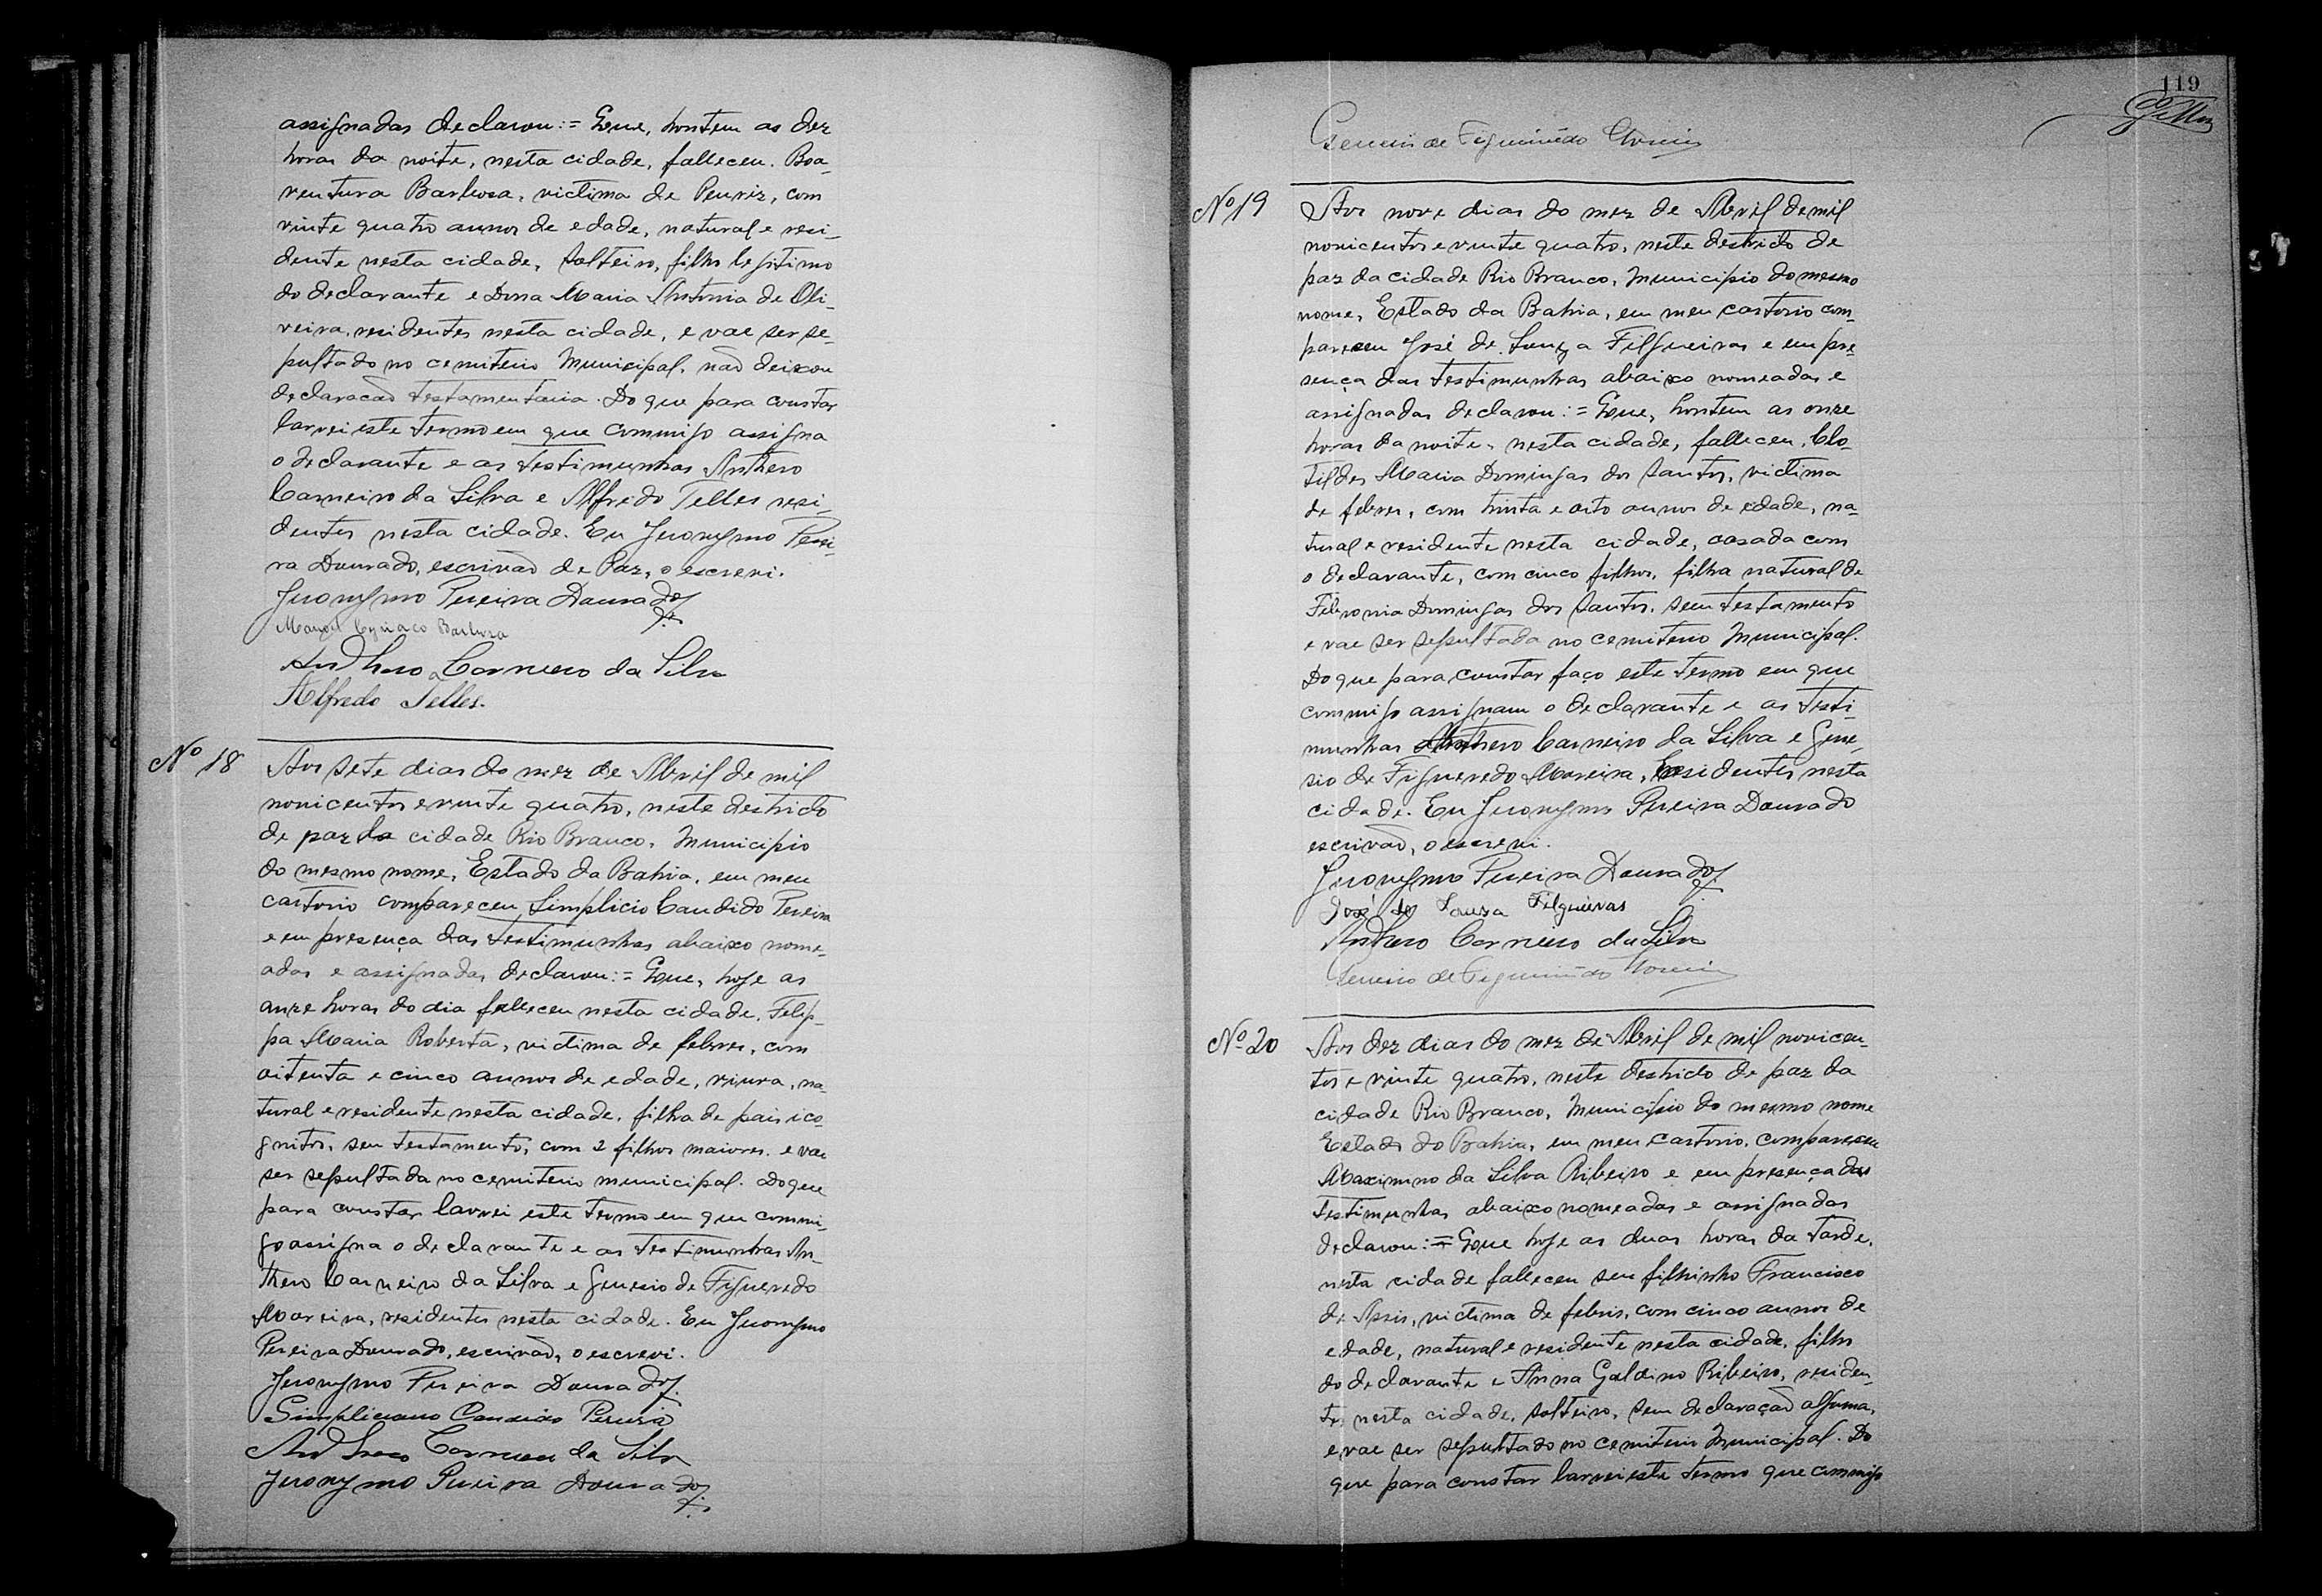 assignadas declarou:= Que, hontem as dez
horas da noite, nesta cidade, falleceu. Boa-
ventura Barbosa, victima de Peuriz, com
vinte quatro annos de edade, natural e resi-
dente nesta cidade, solteiro, filho legitimo
do declarante e Dona Maria Antonia de Oli-
veira, residentes nesta cidade, e vae ser se-
pultado no cemiterio Municipal, não deixou
declaração testamentaria. Do que para constar
lavrei este termo em que commigo assigna
o declarante e as testimunhas Anthero
Carneiro da Silva e Alfredo Telles resi-
dentes nesta cidade. Eu Jeronymo Perei-
ra Dourado, escrivão de Paz, o escrevi.
Jeronymo Pereira Dourado
Manoel Cyriaco Barboza
Anthero Carneiro da Silva
Alfredo Telles.
Nº 18
Aos sete dias do mez de Abril de mil
novicentos e vinte quatro, neste destricto
de paz da cidade Rio Branco, Municipio
do mesmo nome, Estado da Bahia, em meu
cartorio compareceu Simplicio Candido Pereira
e em presença das testimunhas abaixo nome-
adas e assignadas, declarou:= Que, hoje as
onze horas do dia falleceu nesta cidade, Felip-
pa Maria Roberta, victima de febres, com
oitenta e cinco annos de edade, viuva, na-
tural e residente nesta cidade, filha de pais ico-
gnitos, sem testamento, com 2 filhos maiores. e vae
ser sepultada no cemiterio municipal. Do que
para constar lavrei este termo em que commi-
go assigna o declarante e as testimunhas An-
thero Carneiro da Silva e Genesio de Figueredo
Moreira, residentes nesta cidade. Eu Jeronymo
Pereira Dourado, escrivão, o escrevi.
Jeronymo Pereira Dourado
Simpliciano Candido Pereira
Anthero Carneiro da Silva
Jeronymo Pereira Dourado
119
Genesio de Figueiredo Moreira
Nº 19
Aos nove dias do mez de Abril de mil
novicentos e vinte quatro, neste destricto de
paz da cidade Rio Branco, Municipio do mesmo
nome, Estado da Bahia, em meu cartorio com-
pareceu José de Souza Filgueiras e em pre-
sença das testimunhas abaixo nomeadas e
assignadas declarou:= Que, hontem as onze
horas da noite, nesta cidade, falleceu, Clo-
tildes Maria Domingas dos Santos, victima
de febres, com trinta e oito annos de edade, na-
tural e residente nesta cidade, casada com
o declarante, com cinco filhos, filha natural de
Febronia Domingas dos Santos, sem testamento
e vae ser sepultada no cemiterio Municipal.
Do que para constar faço este termo em que
commigo assignam o declarante e as testi-
munhas Anthero Carneiro da Silva e Gene-
sio de Figueredo Moreira, residentes nesta
cidade. Eu Jeronymo Pereira Dourado
escrivão, o escrevi.
Jeronymo Pereira Dourado
José de Souza Filgueiras
Anthero Carneiro da Silva
Genesio de Figueiredo Moreira
Nº 20
Aos dez dias do mez de Abril de mil novicen-
tos e vinte quatro, neste destricto de paz da
cidade Rio Branco, Municipio do mesmo nome
Estado da Bahia, em meu cartorio, compareceu
Maximino da Silva Ribeiro e em presença das
testimunhas abaixo nomeadas e assignadas
declarou:= Que hoje as duas horas da tarde,
nesta cidade falleceu seu filhinho Francisco
de Assis, victima de febris, com cinco annos de
edade, natural e residente nesta cidade, filho
do declarante e Anna Galdino Ribeiro, residen-
te, nesta cidade, solteiro, sem declaração alguma,
e vae ser sepultado no cemiterio Municipal. Do
que para constar lavrei este termo que commigo